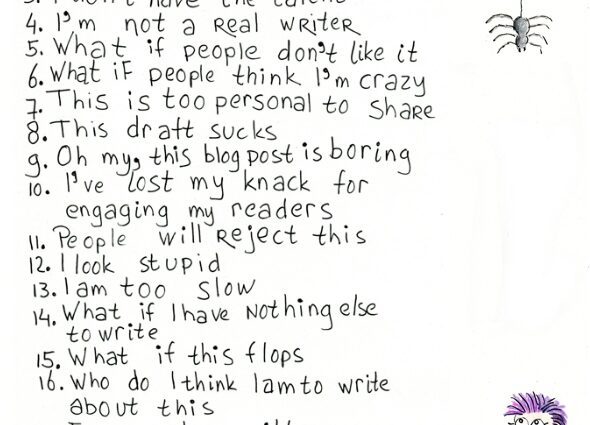 4. I'm not a Real writeR
5. What if people don't like it
6. What iF people think I'm crazy
7. This is too personal to ShaRe
8. This draft sucks
9. Oh my, this blog post is boring
10. I've lost my knack for
engaging my readers
11. People will Reject this
12. I look stupid
13. I am too slow
14. What if I have Nothing else
to write
15. What if this flops
16. Who do I think I am to write
about this